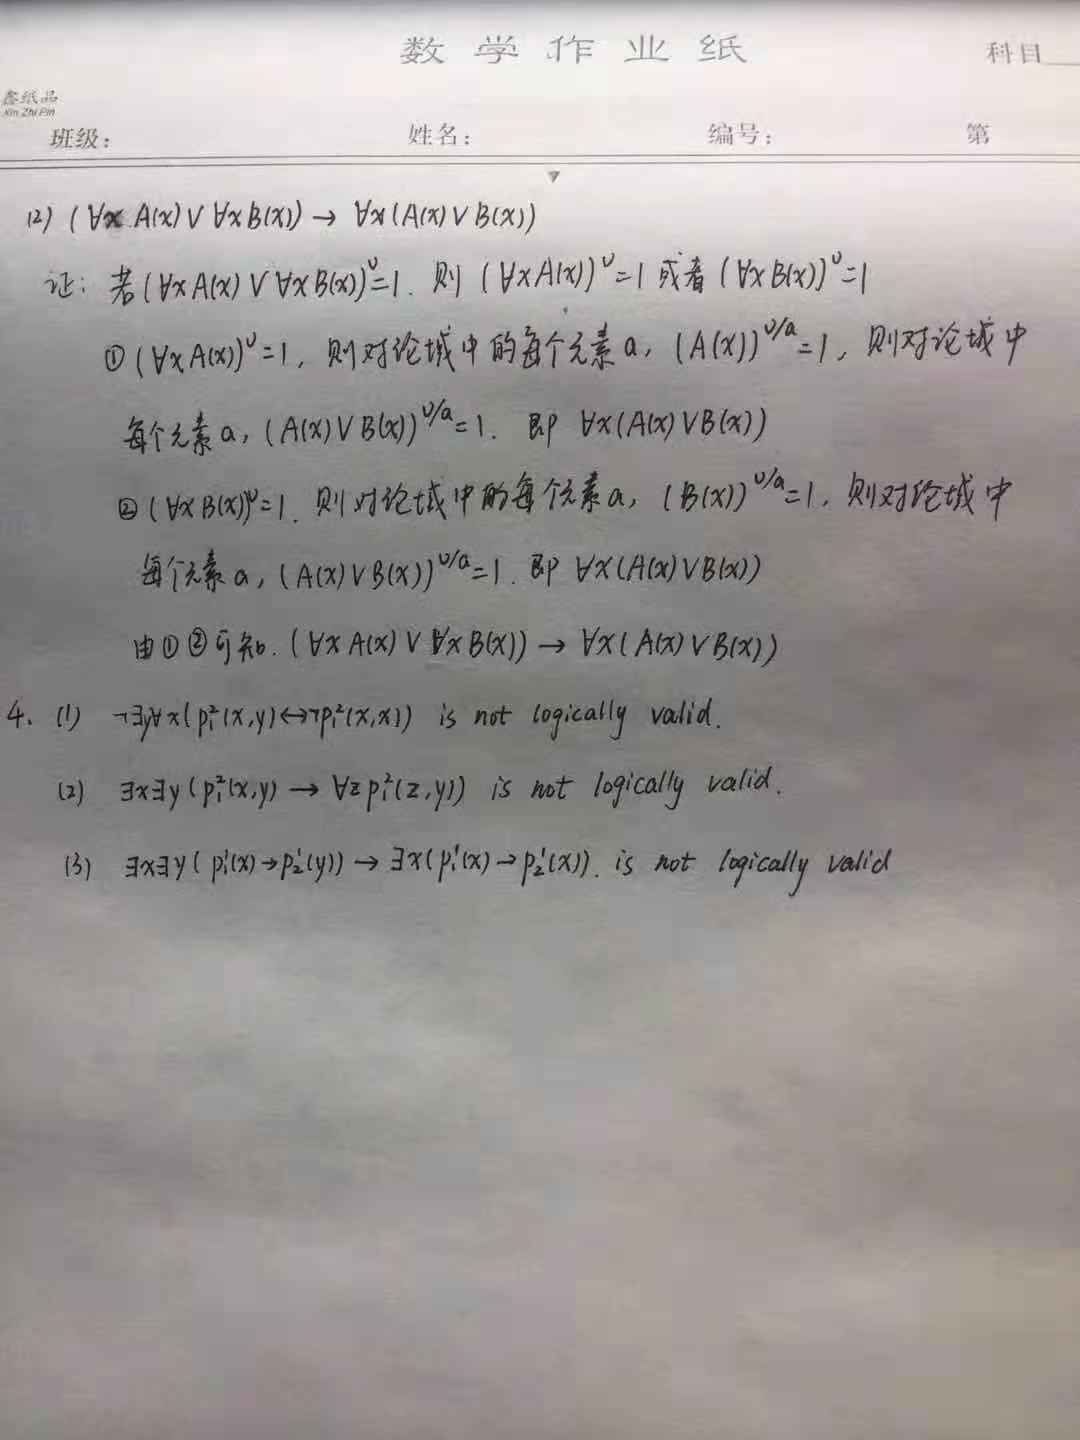 数学作业纸
科目
鑫纸品
Xin Zhi Pin
班级:
姓名:
编号:
第
(2) (∀x A(x) ∨ ∀x B(x)) → ∀x (A(x) ∨ B(x))
证: 若 (∀x A(x) ∨ ∀x B(x))^υ = 1. 则 (∀x A(x))^υ = 1 或者 (∀x B(x))^υ = 1
① (∀x A(x))^υ = 1, 则对论域中的每个元素 a, (A(x))^υ/a = 1, 则对论域中
每个元素 a, (A(x) ∨ B(x))^υ/a = 1. 即 ∀x (A(x) ∨ B(x))
② (∀x B(x))^υ = 1. 则对论域中的每个元素 a, (B(x))^υ/a = 1, 则对论域中
每个元素 a, (A(x) ∨ B(x))^υ/a = 1. 即 ∀x (A(x) ∨ B(x))
由①②可知. (∀x A(x) ∨ ∀x B(x)) → ∀x (A(x) ∨ B(x))
4. (1) ¬∃y∀x (p₁²(x,y) ↔ ¬p₁²(x,x)) is not logically valid.
(2) ∃x∃y (p₁²(x,y) → ∀z p₁²(z,y)) is not logically valid.
(3) ∃x∃y (p₁¹(x) → p₂¹(y)) → ∃x (p₁¹(x) → p₂¹(x)). is not logically valid